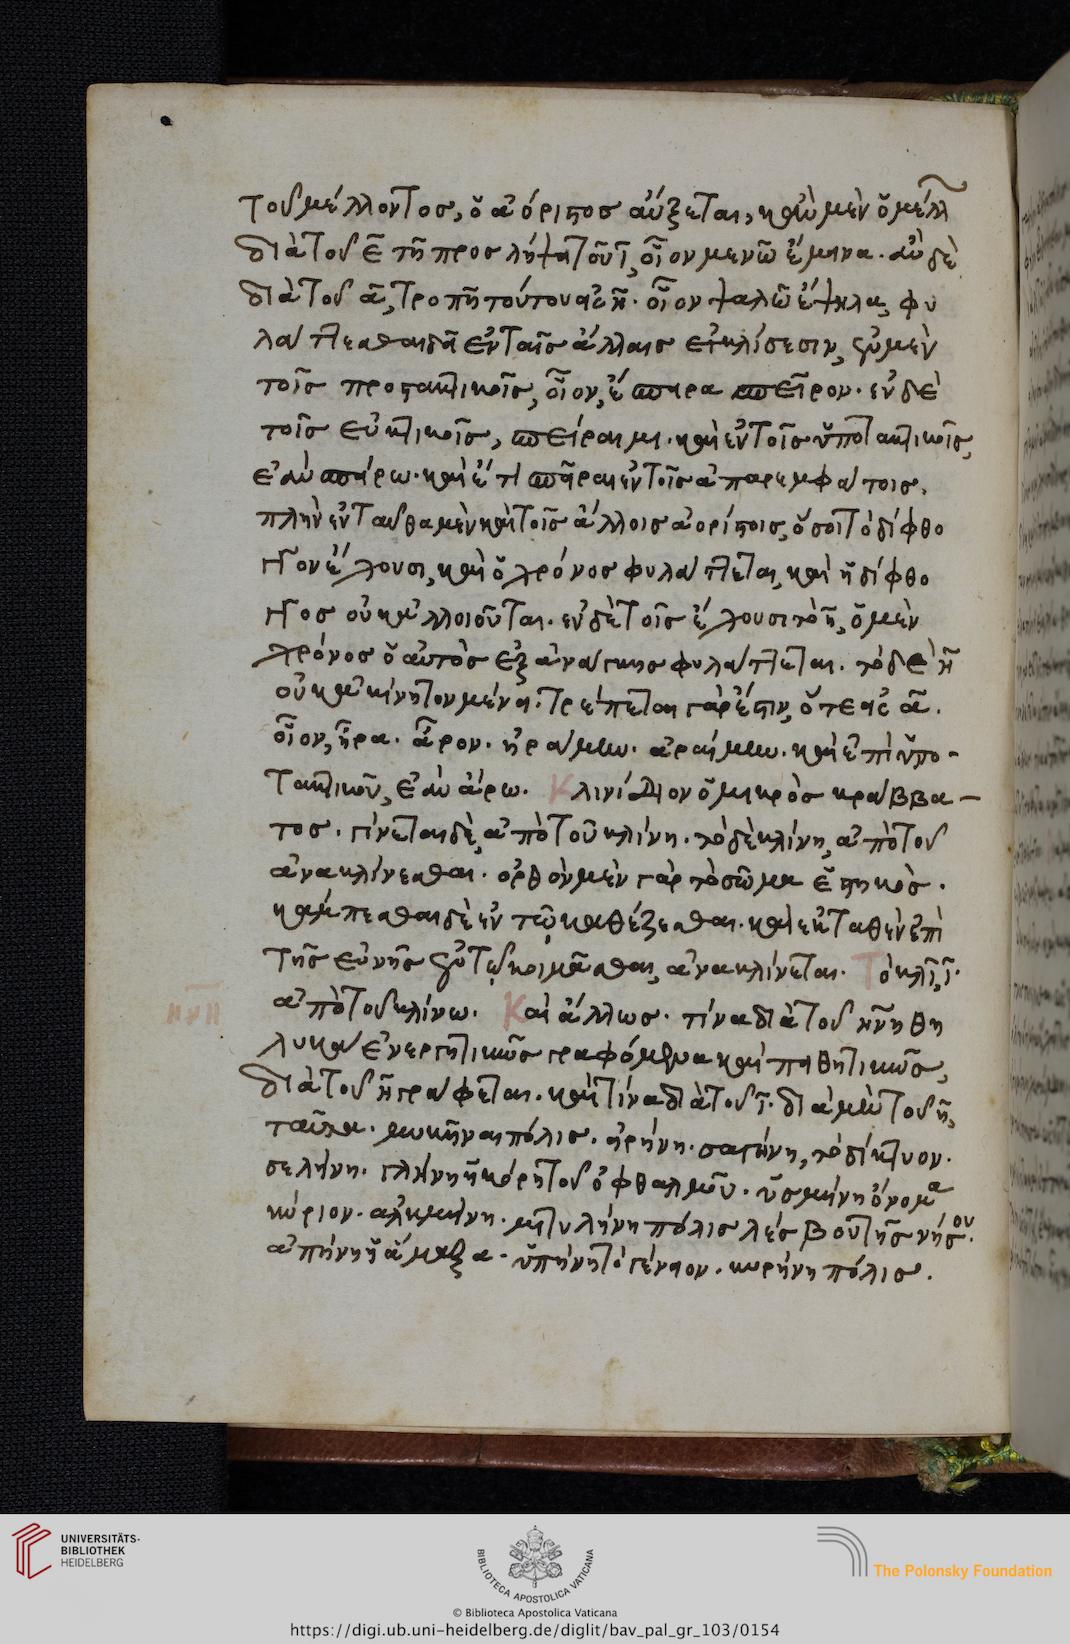 τοῦ μέλλοντος, ὁ ἀόριστος αὔξεται, κἂν μὲν ὁ μέλλ
διὰ τοῦ ε̄ τῆ προσλήψει τοῦ ῑ, οἷον μενῶ ἔμεινα. ἂν δὲ
διὰ τοῦ ᾱ, τροπῆ τούτου εἰς η̄. οἷον ψαλῶ ἔψηλα, φυ
λάττεσθαι δὲ ἐν ταῖς ἄλλαις ἐγκλίσεσιν, ἐν μὲν
τοῖς προστακτικοῖς, οἷον, ἔσπειρα σπεῖρον. ἐν δὲ
τοῖς εὐκτικοῖς, σπείραιμι. καὶ ἐν τοῖς ὑποτακτικοῖς,
ἐὰν σπείρω. καὶ ἔτι σπεῖραι ἐν τοῖς ἀπαρεμφάτοις.
πλὴν ἐνταῦθα μὲν καὶ τοῖς ἄλλοις ἀορίστοις, ὅσοι τὸ δίφθο
γγον ἔχουσι, καὶ ὁ χρόνος φυλάττεται, καὶ ἡ δίφθο
γγος οὐκ ἀλλοιοῦται. ἐν δὲ τοῖς ἔχουσι τὸ η̄, ὁ μὲν
χρόνος ὁ αὐτὸς ἐξ ἀνάγκης φυλάττεται. τὸ δὲ η̄
οὐκ ἀκίνητον μένει. τρέπεται γὰρ ἔστιν, ὅτε εἰς ᾱ.
οἷον, ἦρα. ἆρον. ἠράμην. ἀραίμην. καὶ ἐπὶ ὑπο-
τακτικοῦ, ἐὰν ἄρω. Κλινίδιον ὁ μικρὸς κράββα-
τος. γίνεται δὲ, ἀπὸ τοῦ κλίνη. τὸ δὲ κλίνη, ἀπὸ τοῦ
ἀνακλίνεσθαι. ὀρθὸν μὲν γὰρ τὸ σῶμα ἑστηκὸς.
κάμπεσθαι δὲ ἐν τῶ καθέζεσθαι. καὶ ἐκταθὲν ἐπὶ
τῆς εὐνῆς ἐν τῶ κοιμᾶσθαι, ἀνακλίνεται. Τὸ κλῑ, ῑ.
ἀπὸ τοῦ κλίνω. Καὶ ἄλλως. τίνα διὰ τοῦ η̄ν̄η θη
λυκὰ ἐνεργητικῶς γραφόμενα καὶ παθητικῶς,
διὰ τοῦ η̄ γράφεται. καὶ τίνα διὰ τοῦ ῑ. διὰ μὲν τοῦ η̄,
ταῦτα. μυκῆναι πόλις. εἰρήνη. σαγήνη, τὸ δίκτυον.
σελήνη. γλήνη ἡ κόρη τοῦ ὀφθαλμοῦ. ὑσμήνη ὄνομα
κύριον. ἀλκμήνη. μιτυλήνη πόλις λέσβου τῆς νήσου.
ἀπήνη ἡ ἅμαξα. ὑπήνη τὸ γένειον. κυρήνη πόλις.
UNIVERSITÄTS-
BIBLIOTHEK
HEIDELBERG
BIBLIOTECA APOSTOLICA VATICANA
The Polonsky Foundation
© Biblioteca Apostolica Vaticana
https://digi.ub.uni-heidelberg.de/diglit/bav_pal_gr_103/0154